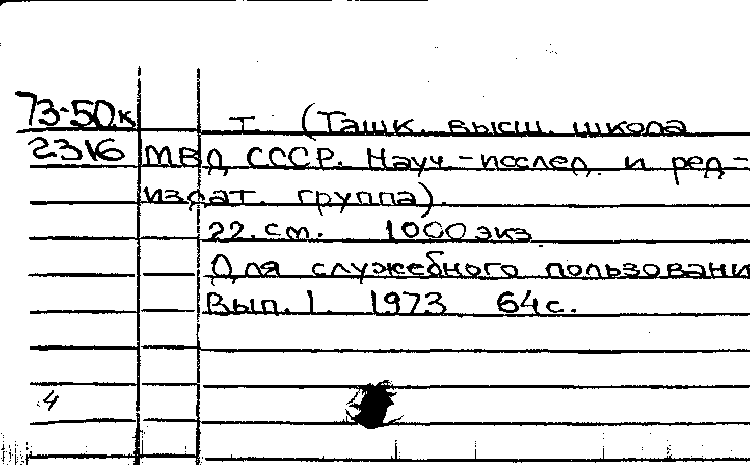 73-50к т. (Ташк. высш. школа
2316 МВД СССР. Науч.-исслед. и ред.-
издат. группа).
22 см. 1000 экз.
Для служебного пользовани
Вып. 1. 1973 64 с.
4